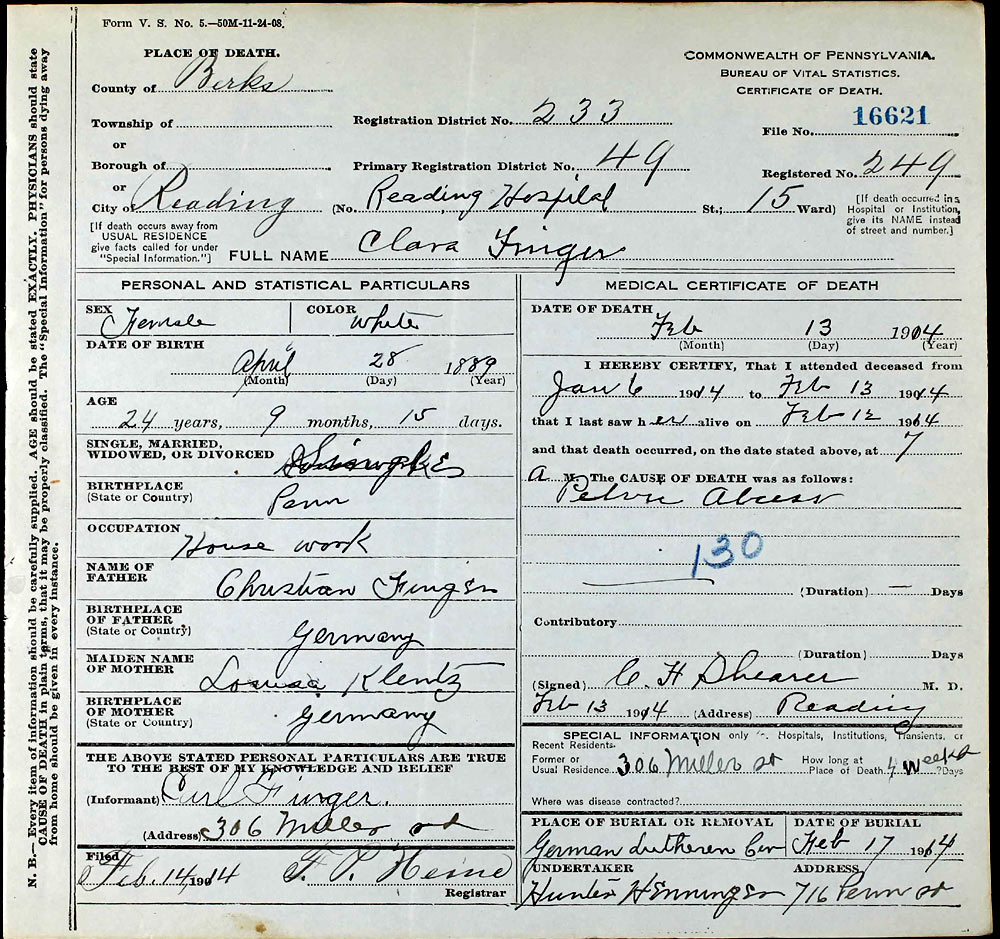 Form V. S. No. 5.—50M-11-24-08.
PLACE OF DEATH.
County of Berks
Township of
or
Borough of
or
City of Reading
[If death occurs away from
USUAL RESIDENCE
give facts called for under
"Special Information."]
Registration District No. 233
Primary Registration District No. 49
(No. Reading Hospital St.; 15 Ward)
FULL NAME Clara Finger
COMMONWEALTH OF PENNSYLVANIA.
BUREAU OF VITAL STATISTICS.
CERTIFICATE OF DEATH.
File No. 16621
Registered No. 249
[If death occurred in a
Hospital or Institution,
give its NAME instead
of street and number.]
N. B.—Every item of information should be carefully supplied. AGE should be stated EXACTLY. PHYSICIANS should state
CAUSE OF DEATH in plain terms, that it may be properly classified. The "Special Information" for persons dying away
from home should be given in every instance.
PERSONAL AND STATISTICAL PARTICULARS
SEX Female
COLOR White
DATE OF BIRTH
April 28 1889
(Month) (Day) (Year)
AGE
24 years, 9 months, 15 days.
SINGLE, MARRIED,
WIDOWED, OR DIVORCED
BIRTHPLACE
(State or Country) Penn
OCCUPATION
House work
NAME OF
FATHER Christian Finger
BIRTHPLACE
OF FATHER
(State or Country) Germany
MAIDEN NAME
OF MOTHER Louisa Klentz
BIRTHPLACE
OF MOTHER
(State or Country) Germany
THE ABOVE STATED PERSONAL PARTICULARS ARE TRUE
TO THE BEST OF MY KNOWLEDGE AND BELIEF
(Informant) Carl Finger.
(Address) 306 Miller st
Filed
Feb. 14 1914 F. P. Heine
Registrar
MEDICAL CERTIFICATE OF DEATH
DATE OF DEATH
Feb 13 1914
(Month) (Day) (Year)
I HEREBY CERTIFY, That I attended deceased from
Jan 6 1914 to Feb 13 1914
that I last saw her alive on Feb 12 1914
and that death occurred, on the date stated above, at 7
A M. The CAUSE OF DEATH was as follows:
Pelvic Abcess
130
(Duration) — Days
Contributory
(Duration) Days
(Signed) C. H Shearer M. D.
Feb 13 1914 (Address) Reading
SPECIAL INFORMATION only for Hospitals, Institutions, Transients, or
Recent Residents.
Former or
Usual Residence 306 Miller st
How long at
Place of Death 4 weeks ? Days
Where was disease contracted?
PLACE OF BURIAL OR REMOVAL
German Lutheren Cem
DATE OF BURIAL
Feb 17 1914
UNDERTAKER
Hunter Henninger
ADDRESS
716 Penn st